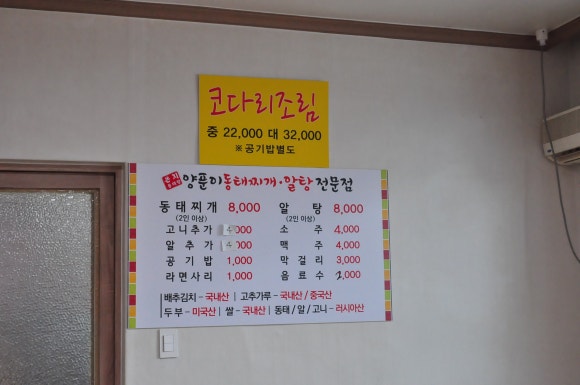 코다리조림
중 22,000 대 32,000
※공기밥별도
양푼이동태찌개·알탕 전문점
동태찌개 8,000 알탕 8,000
(2인 이상) (2인 이상)
고니추가 4,000 소주 4,000
알추가 4,000 맥주 4,000
공기밥 1,000 막걸리 3,000
라면사리 1,000 음료수 2,000
배추김치 - 국내산 | 고추가루 - 국내산 / 중국산
두부 - 미국산 | 쌀 - 국내산 | 동태 / 알 / 고니 - 러시아산